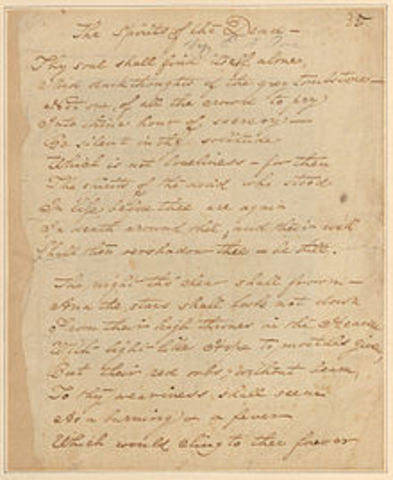 35
The Spirits of the Dead —
Thy soul shall find itself alone,
'Mid dark thoughts of the grey tombstone —
Not one, of all the crowd to pry
Into thine hour of secrecy —
Be silent in that solitude
Which is not loneliness — for then
The spirits of the dead who stood
In life before thee are again
In death around thee, and their will
Shall then overshadow thee — be still.
The night tho' clear shall frown —
And the stars shall look not down
From their high thrones in the Heaven
With light like Hope to mortals given,
But their red orbs, without beam,
To thy weariness shall seem
As a burning & a fever
Which would cling to thee forever